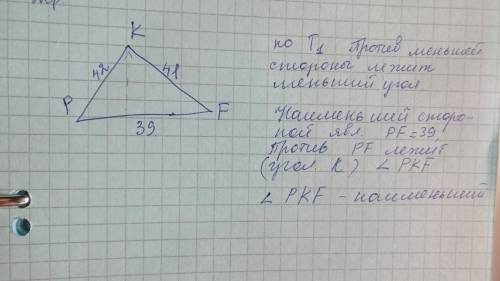 K
42
41
P
F
39
по Т1 Против меньшей
стороны лежит
меньший угол
Наименьшей сторо-
ной явл. PF=39
Против PF лежит
(угол K) ∠ PKF
∠ PKF - наименьший